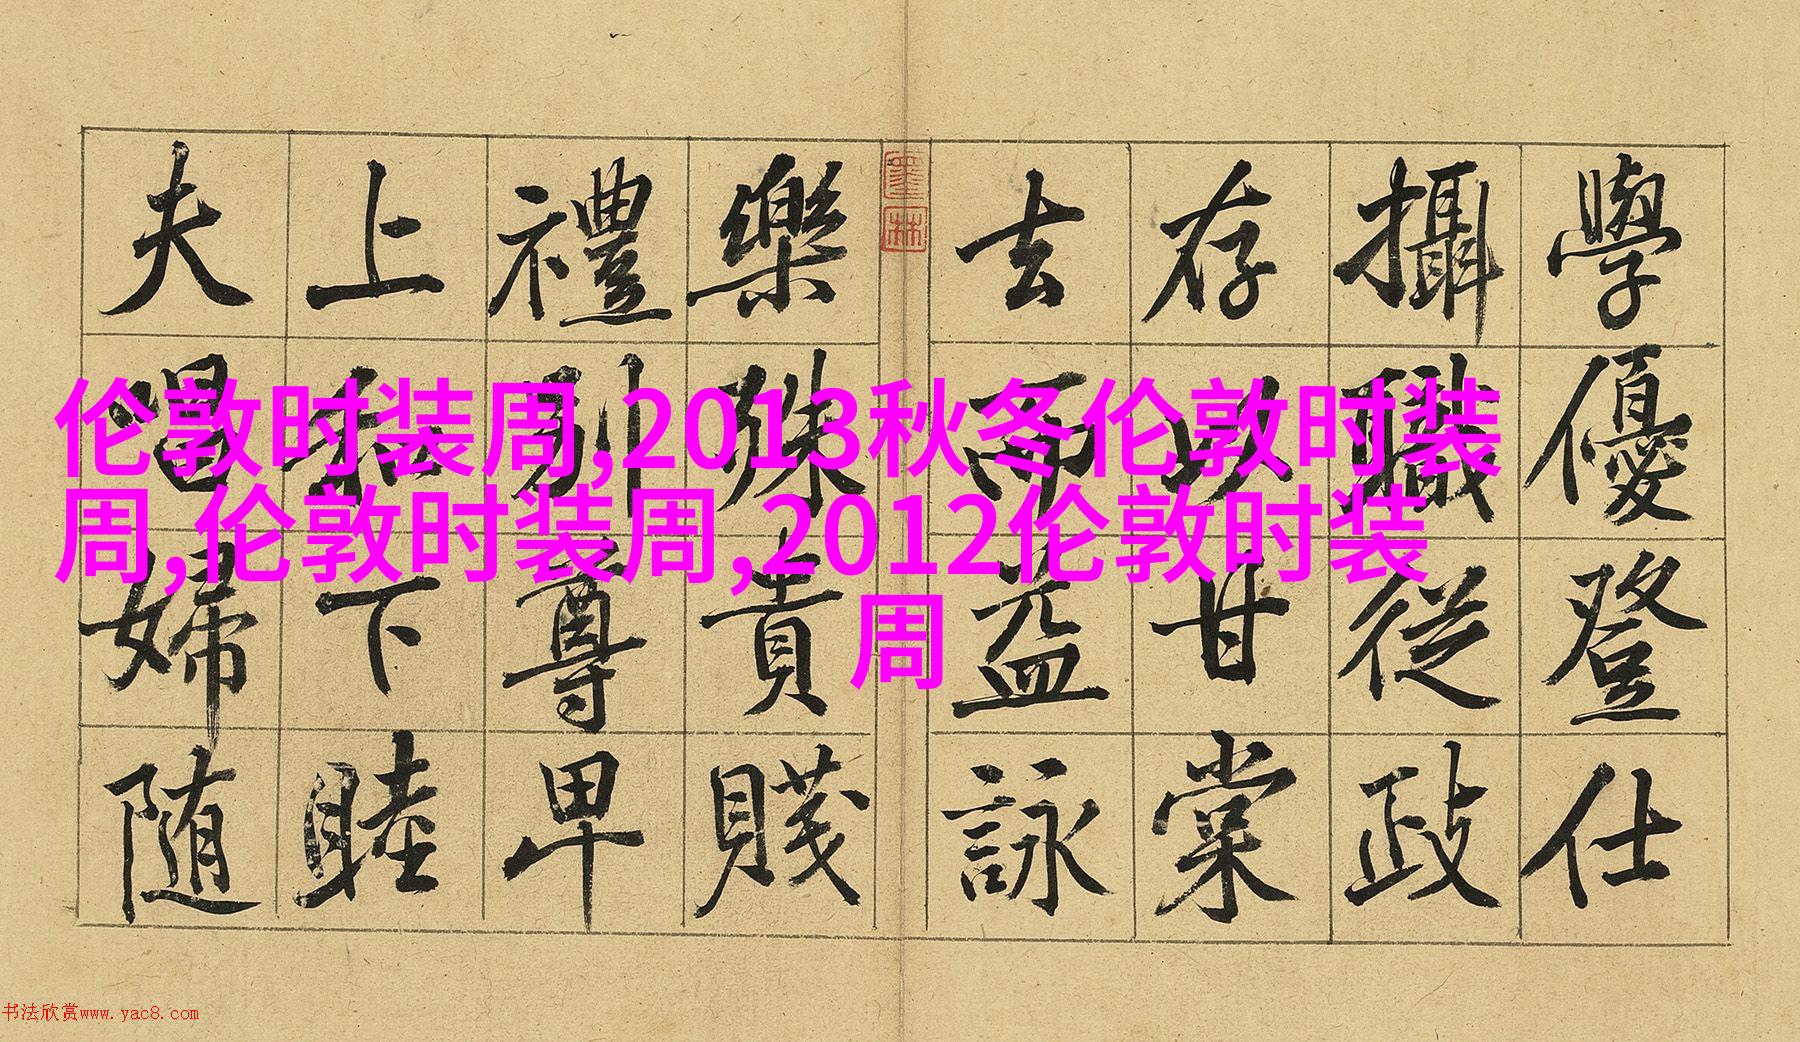 學優登仕
攝職從政
存以甘棠
去而益詠
墨林
樂殊貴賤
禮別尊卑
上和下睦
夫唱婦随
伦敦时装周,2013秋冬伦敦时装
周,伦敦时装周,2012伦敦时装
周
书法欣赏www.yac8.com